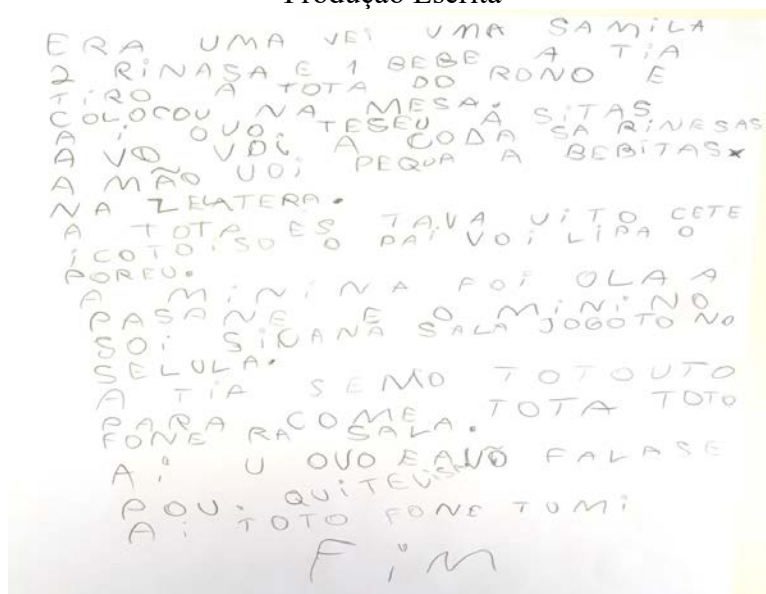 Produção Escrita
ERA UMA VEI UMA SAMILA
2 RINASA E 1 BEBE A TIA
TIRO A TOTA DO RONO E
COLOCOU NA MESA.
A i O VO TESEU A SITAS
A VO VOi A CODA SA RINESAS
A MÃO UOi PEQUA A BEBITAS
NA ZELATERA.
A TOTA ES TAVA UiTO CETE
iCOTOiSO O PAi VOi LIPA O
POREU.
A MiNiNA FOi OLA A
PASANE E O MiNiNO
SOi SiCANA SALA JOGOTO NO
SELULA.
A TIA SEMO TOTOUTO
PARA COME TOTA TOTO
FONE RA SALA.
Ai U OVO E AVÕ FALASE
POU. QUiTEViSA
Ai TOTO FONE TUMi
FiM